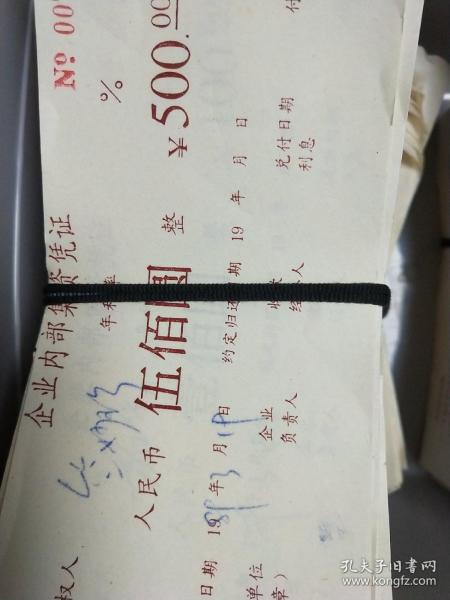 企业内部集资凭证 № 00
权人 年利率 %
人民币 伍佰圆 整 ¥500.00
日期 1989年3月19日 约定归还日期 19 年 月 日 付
单位 企业 兑付日期
章） 负责人 经 人 利息
孔夫子旧书网
www.kongfz.com